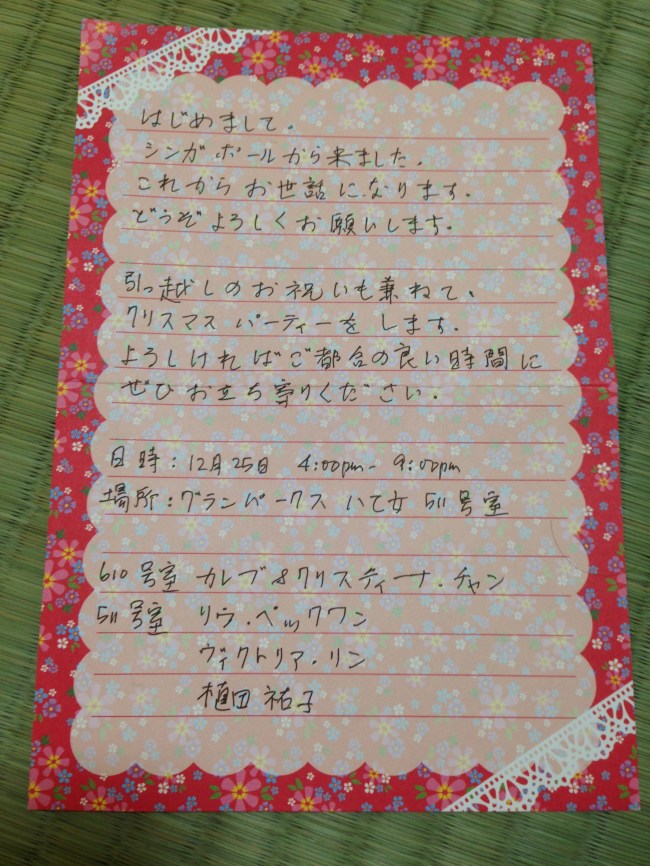 はじめまして。
シンガポールから来ました。
これからお世話になります。
どうぞよろしくお願いします。
引っ越しのお祝いも兼ねて、
クリスマスパーティーをします。
よろしければご都合の良い時間に
ぜひお立ち寄りください。
日時：12月25日 4:00pm - 9:00pm
場所：グランパークス 八乙女 511号室
610号室 カレブ&クリスティーナ・チャン
511号室 リウ・ペックワン
ヴィクトリア・リン
植田 祐子